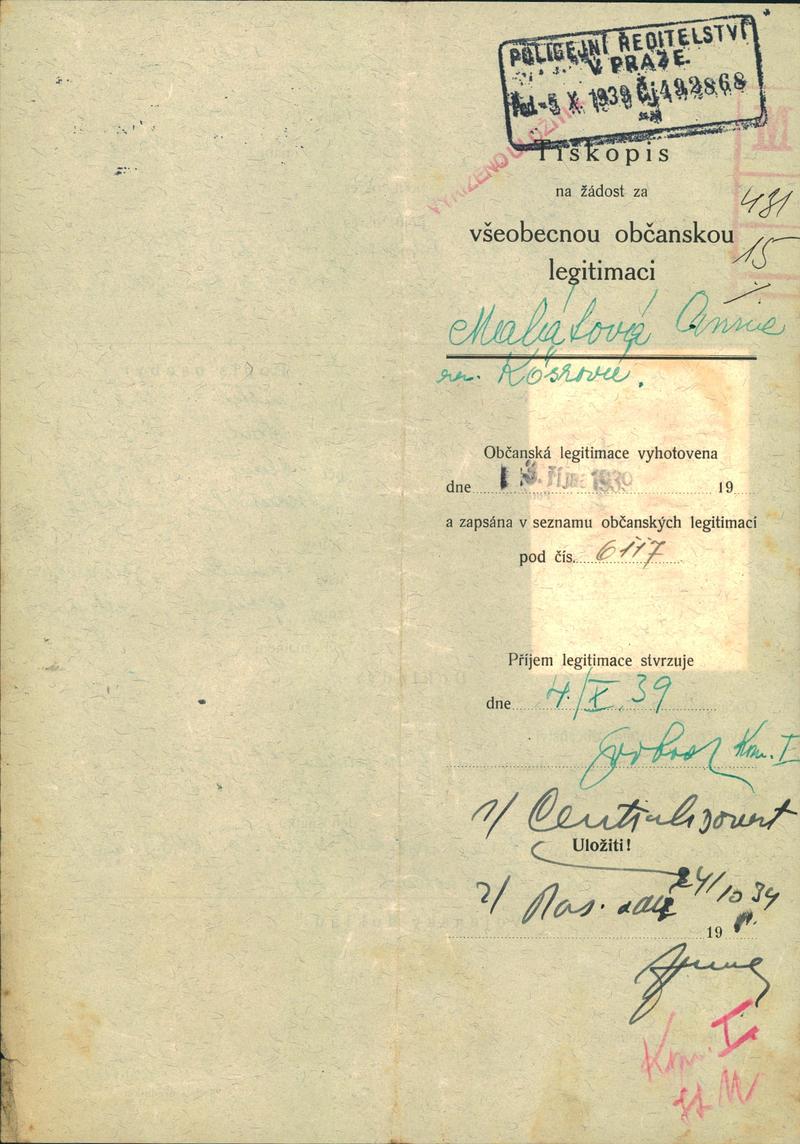 POLICEJNÍ ŘEDITELSTVÍ
V PRAZE.
-5 X 1939 Čj 492868
VYŘÍZENO ULOŽIT
M
Tiskopis
na žádost za
431
všeobecnou občanskou
15
legitimaci
Malátová Anna
Občanská legitimace vyhotovena
dne října 1939 19
a zapsána v seznamu občanských legitimací
pod čís. 6117
Příjem legitimace stvrzuje
dne 4./X. 39
Kom. I
1/ Centralisovat
Uložiti!
2/
24/10 39
19
Kom. I